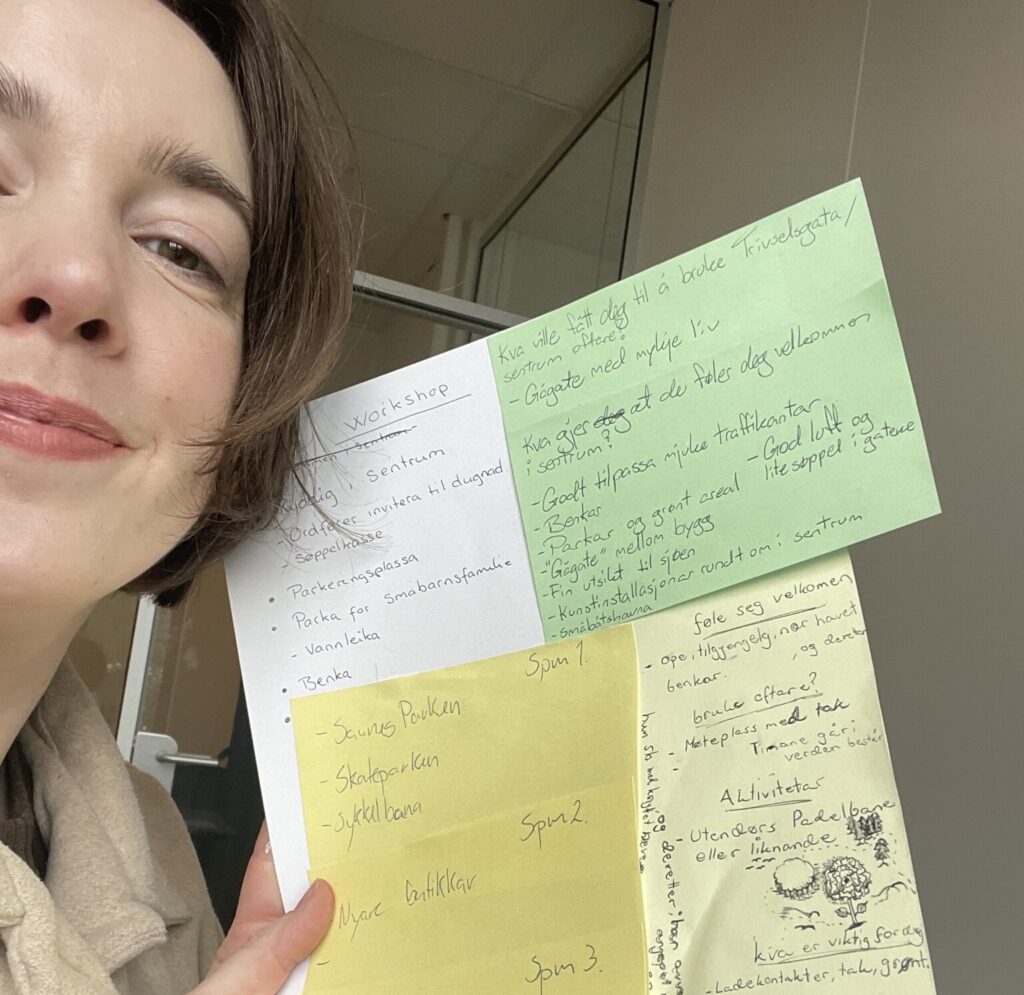 Workshop
i Sentrum
Ryddig i sentrum
- Ordfører invitera til dugnad.
- Søppelkasse
• Parkeringsplassa
• Parka for småbarnsfamilie
- Vannleika
• Benka
•
Kva ville fått deg til å bruke Trivselsgata/
sentrum oftare?
- Gågate med mykje liv
Kva gjer deg at du føler deg velkommen
i sentrum?
- Godt tilpassa mjuke traffikantar
- Benkar
- God luft og
lite søppel i gatene
- Parkar og grønt areal
- "Gågate" mellom bygg
- Fin utsikt til sjøen
- Kunstinstallasjonar rundt om i sentrum
- Småbåtshavna
Spm 1.
- Saunes Parken
- Skateparken
- Sykkelbana
Spm 2.
Nyare butikkar
-
Spm 3.
føle seg velkomen
- Ope, tilgjengelig, nær havet
, og dereter
benkar.
bruke oftare?
- Møteplass med tak
Timane går i
verden består
Aktivitetar
- Utendørs Padelbane
eller liknande
kva er viktig for deg
- Ladekontakter, tak, grønt.
hun sto med knyttet neve
og deretter i